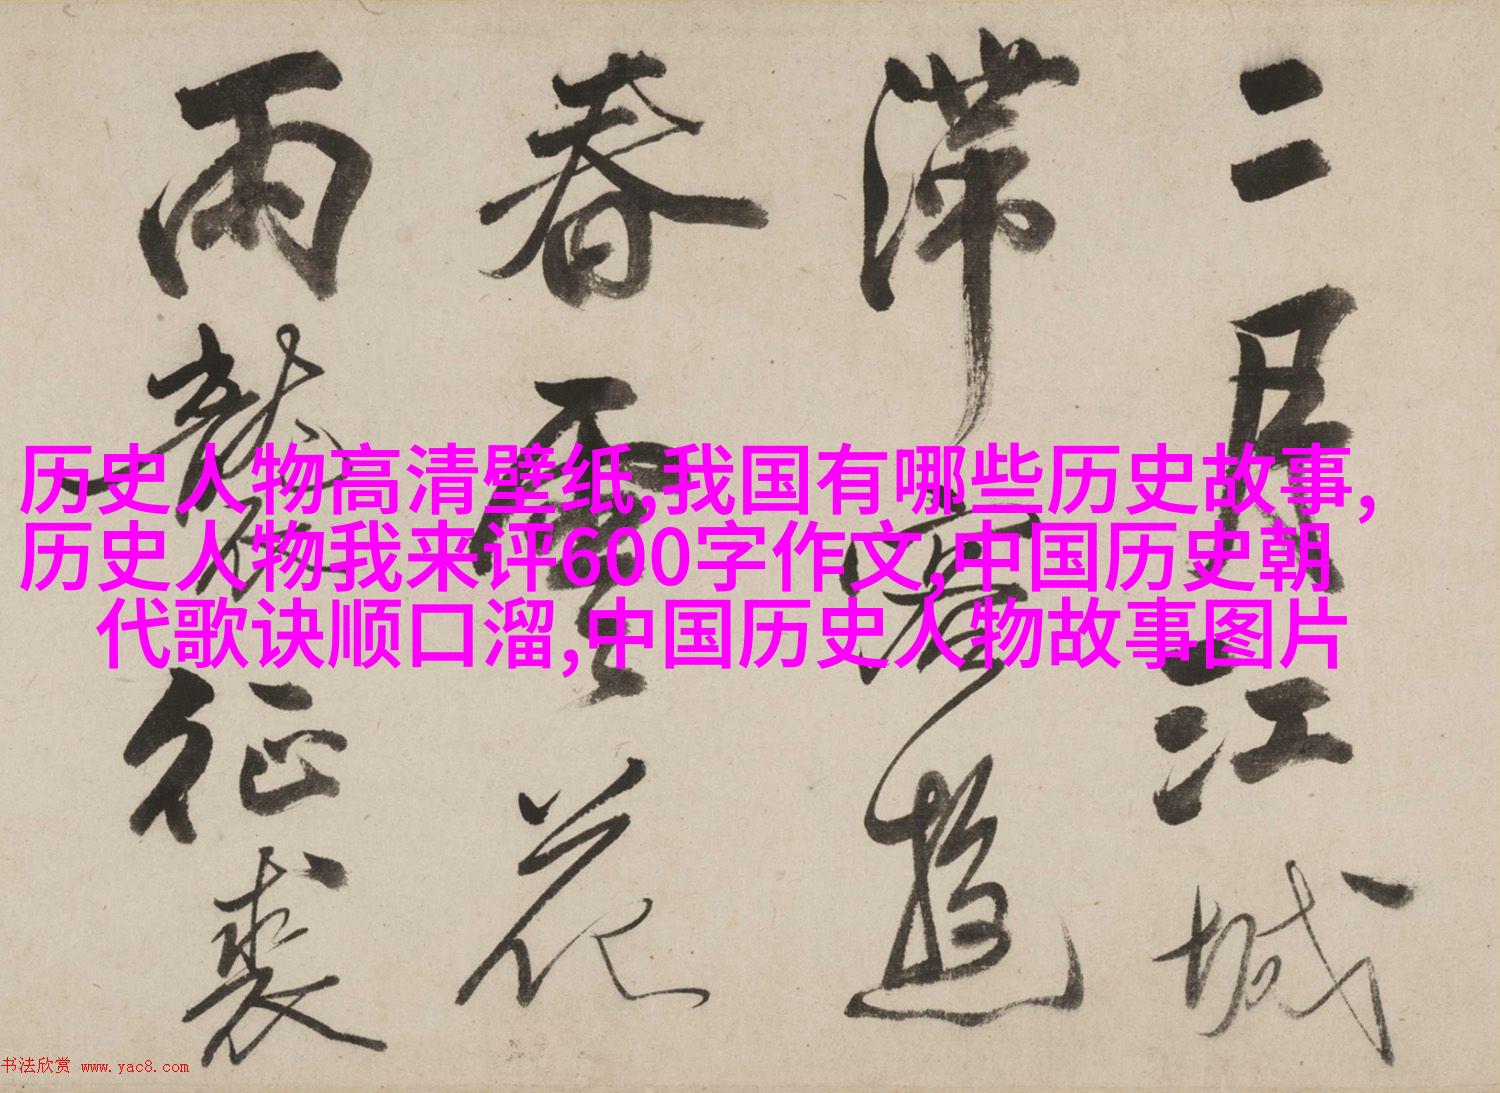 二月江城
滞客遊
春雲花
雨襲征裘
历史人物高清壁纸,我国有哪些历史故事,
历史人物我来评600字作文,中国历史朝
代歌诀顺口溜,中国历史人物故事图片
书法欣赏 www.yac8.com